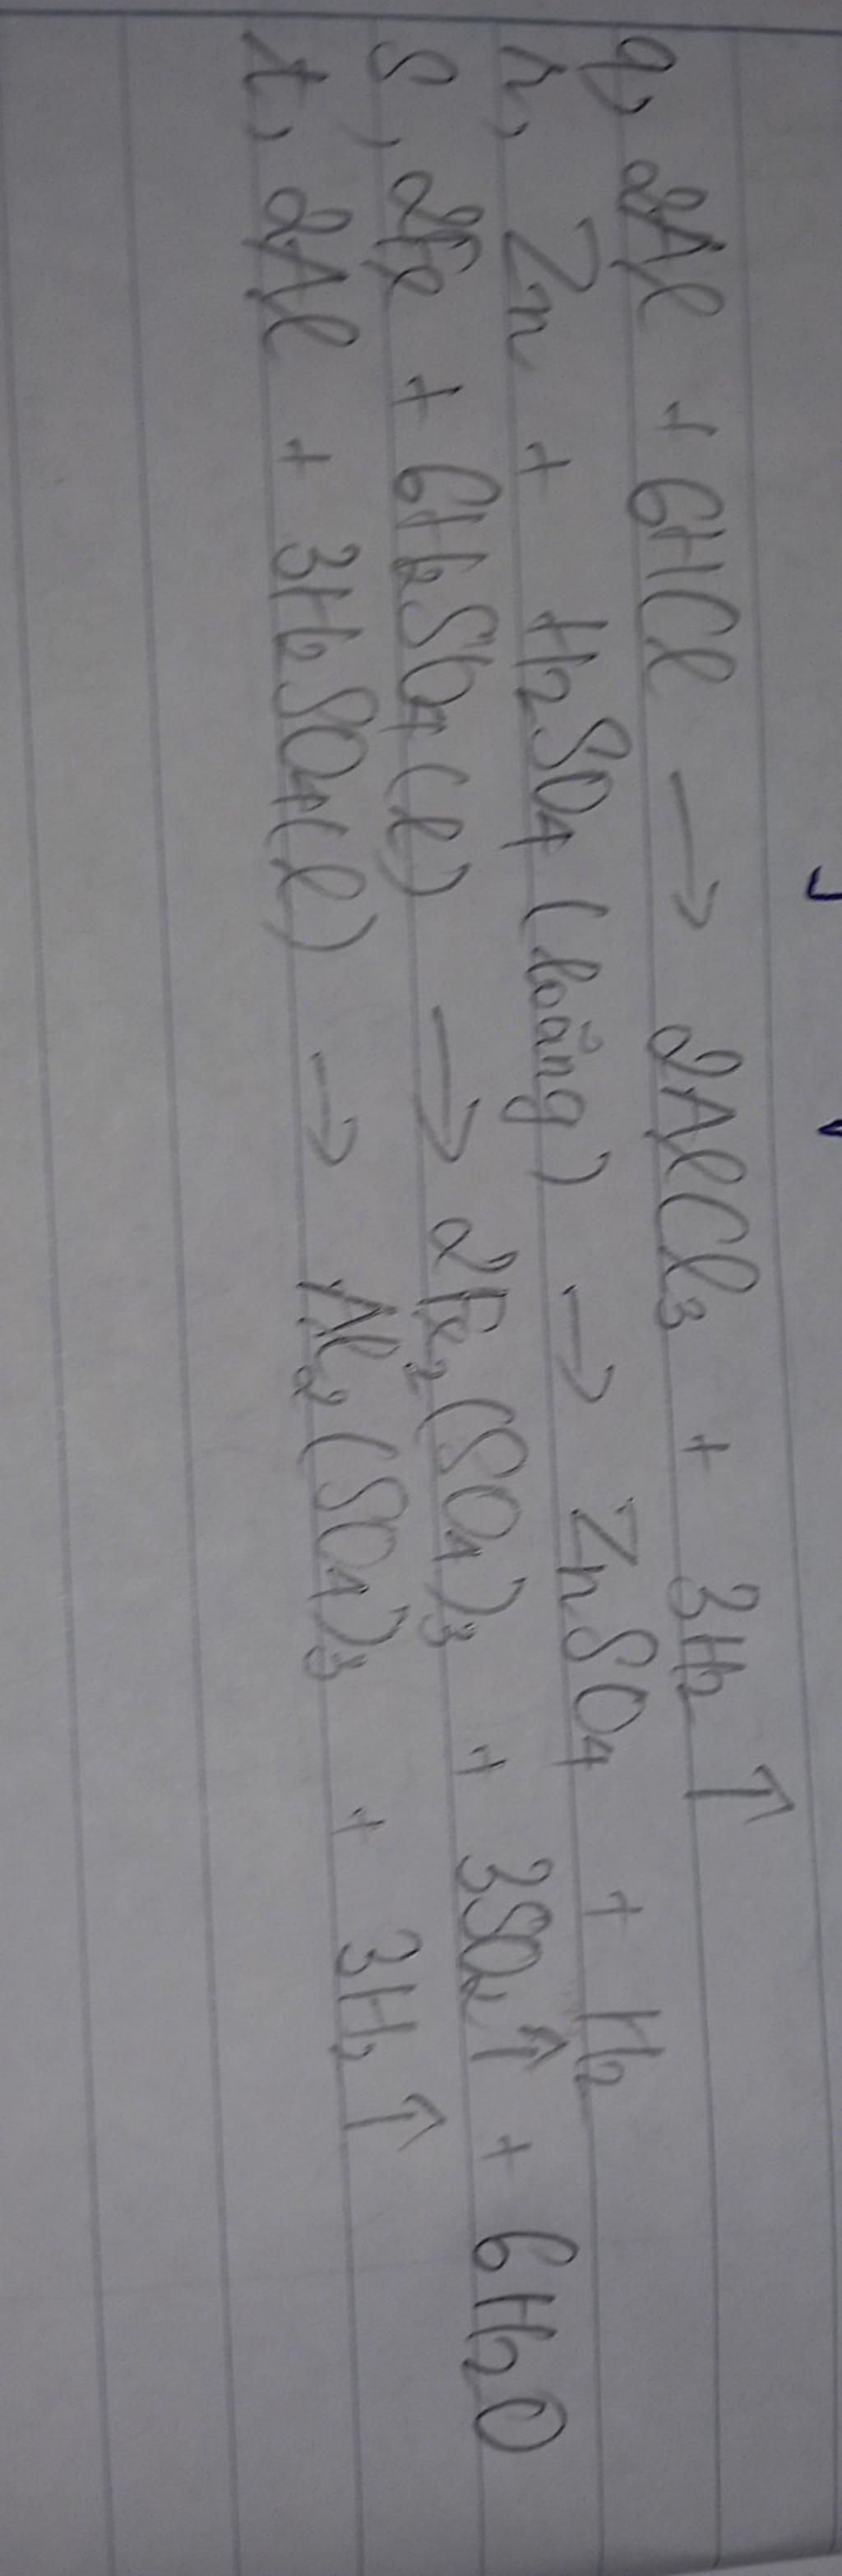 q, 2Al + 6HCl → 2AlCl₃ + 3H₂ ↑
r, Zn + H₂SO₄ (loãng) → ZnSO₄ + H₂
s, 2Fe + 6H₂SO₄ (l) → 2Fe₂(SO₄)₃ + 3SO₂ ↑ + 6H₂O
t, 2Al + 3H₂SO₄(l) → Al₂(SO₄)₃ + 3H₂ ↑